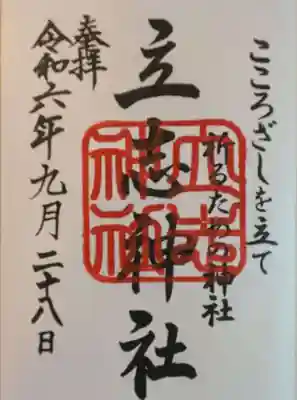 こころざしを立て
祈るための神社
立志神社
奉拝
令和六年九月二十八日